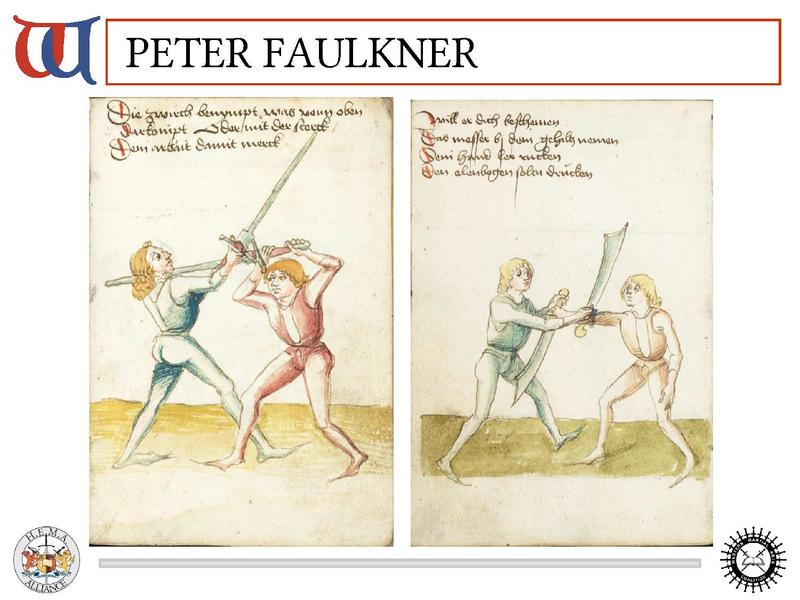 PETER FAULKNER
Die zwirch benympt was vonn oben
darkompt Oder mit der sterck
Dem arbait damit merck
Will er dich beschemen
Das messer bj dem gehiltz nemen
Dein hand ker rucken
Den elenbogen soltu drucken
H.E.M.A.
ALLIANCE